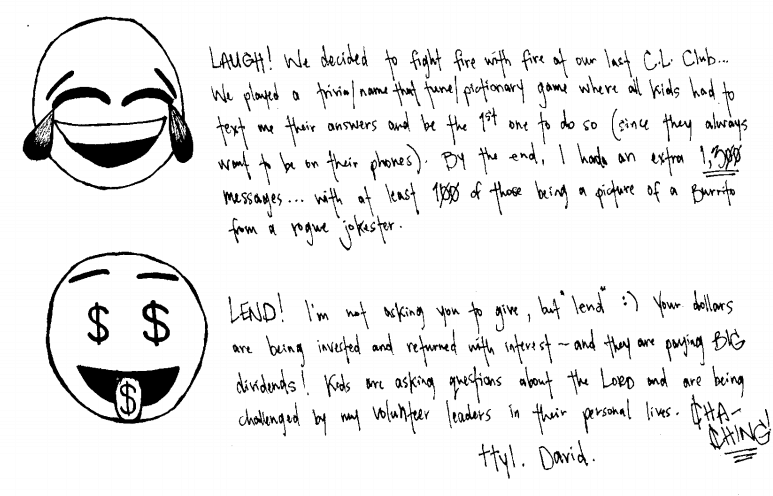 LAUGH! We decided to fight fire with fire at our last C.L. Club...
We played a trivia/name that tune/pictionary game where all kids had to
text me their answers and be the 1st one to do so (since they always
want to be on their phones). By the end, I had an extra 1,300
messages... with at least 100 of those being a picture of a Burrito
from a rogue jokester.
$ $
$
LEND! I'm not asking you to give, but "lend" :) Your dollars
are being invested and returned with interest ~ and they are paying BIG
dividends! Kids are asking questions about the LORD and are being
challenged by my volunteer leaders in their personal lives. $HA-
$HING!
ttyl. David.